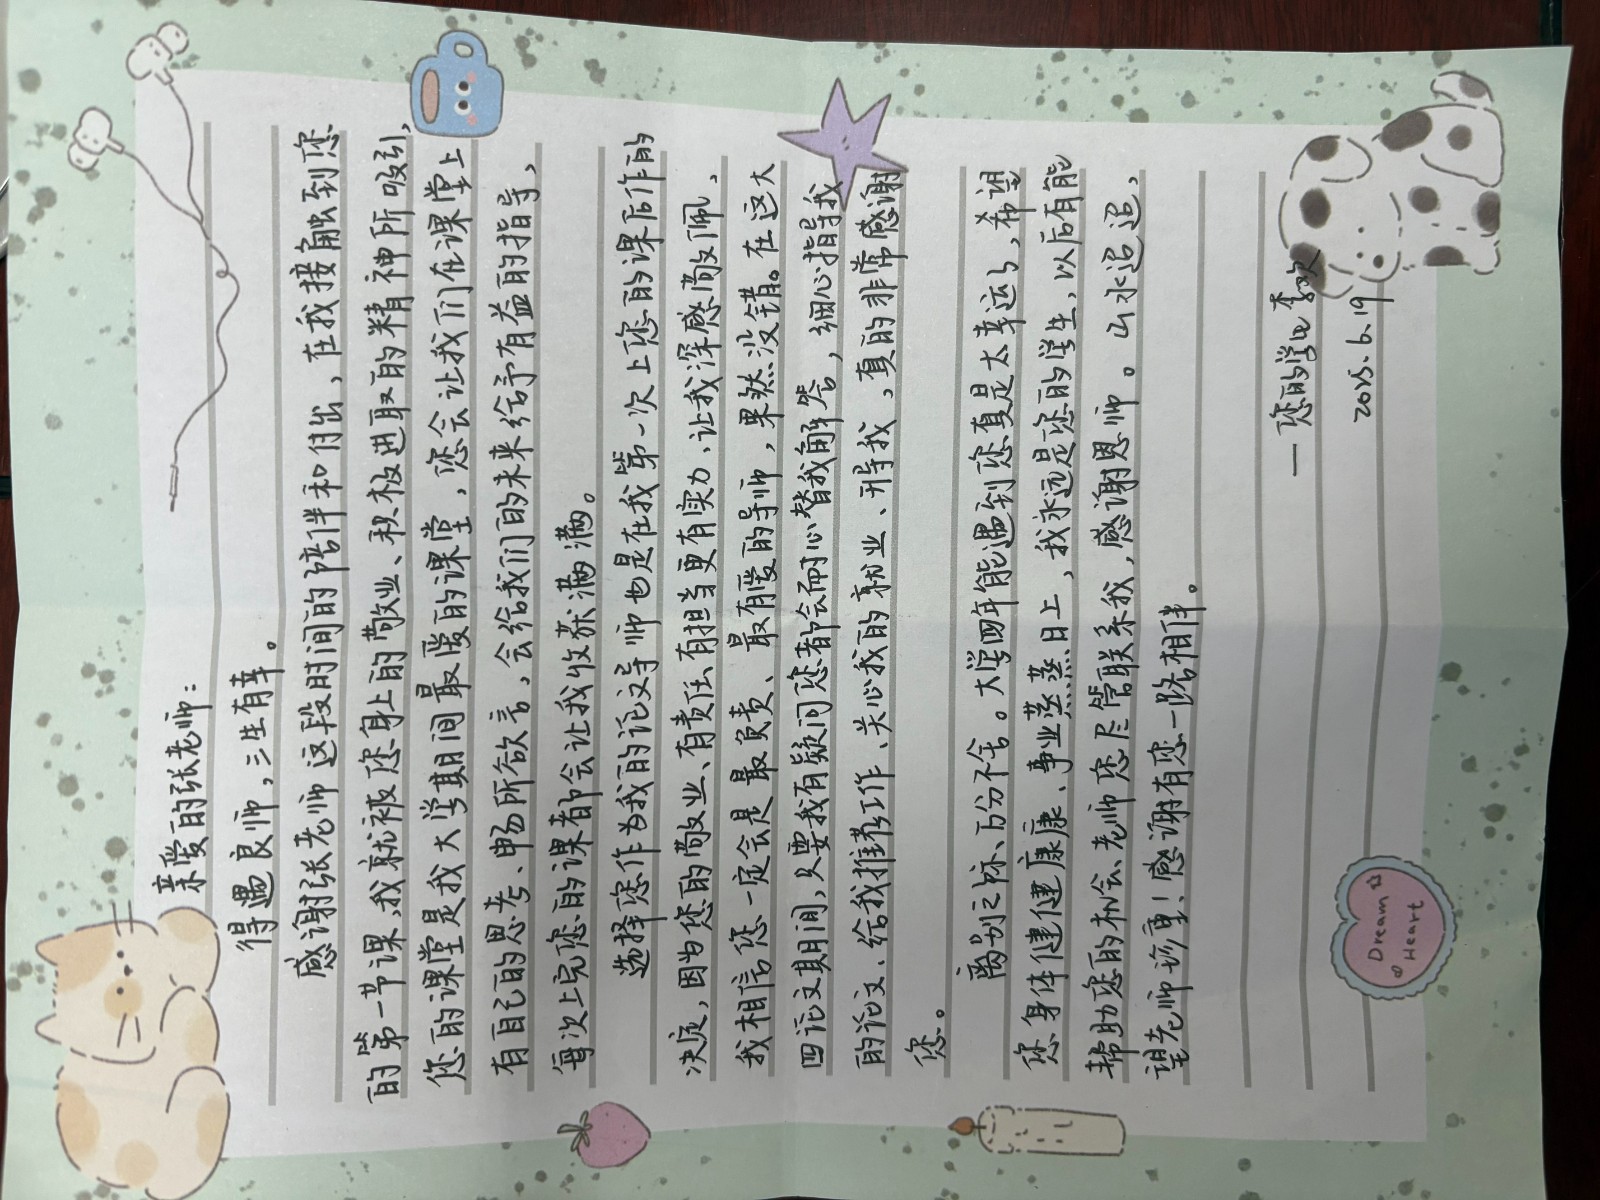 亲爱的张老师：
得遇良师，三生有幸。
感谢张老师这段时间的陪伴和付出，在我接触到您
的第一节课，我就被您身上的敬业、积极进取的精神所吸引，
您的课堂是我大学期间最爱的课堂，您会让我们在课堂上
有自己的思考、畅所欲言，会给我们的未来给予有益的指导，
每次上完您的课都会让我收获满满。
选择您作为我的论文导师也是在我第一次上您的课后作的
决定，因为您的敬业、有责任、有担当更有实力，让我深感敬佩，
我相信您一定会是最负责、最有爱的导师，果然没错。在这大
四论文期间，只要我有疑问您都会耐心替我解答，细心指导我
的论文、给我推荐工作、关心我的就业、升导我，真的非常感谢
您。
离别之际、万分不舍。大学四年能遇到您真是太幸运了，希望
您身体健健康康、事业蒸蒸日上，我永远是您的学生，以后有能
帮助您的机会老师您尽管联系我，感谢恩师。山水迢迢，
望老师珍重！感谢有您一路相伴。
—您的学生李欢
2025.6.19
Dream
Heart